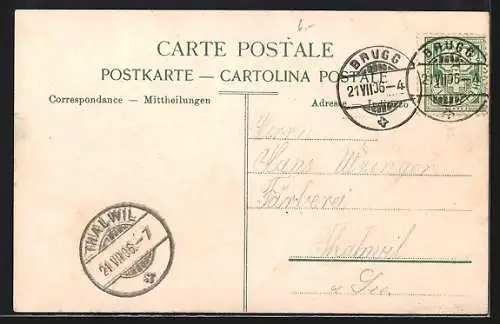 6.-
CARTE POSTALE
POSTKARTE — CARTOLINA POSTALE
Correspondance — Mittheilungen
Adresse — Indirizzo
BRUGG
21 VII 06-4
BRUGG
21 VII 06-4
Herrn
Hans
Färberei
Thalwil
a See.
THALWIL
21 VII 06.-7